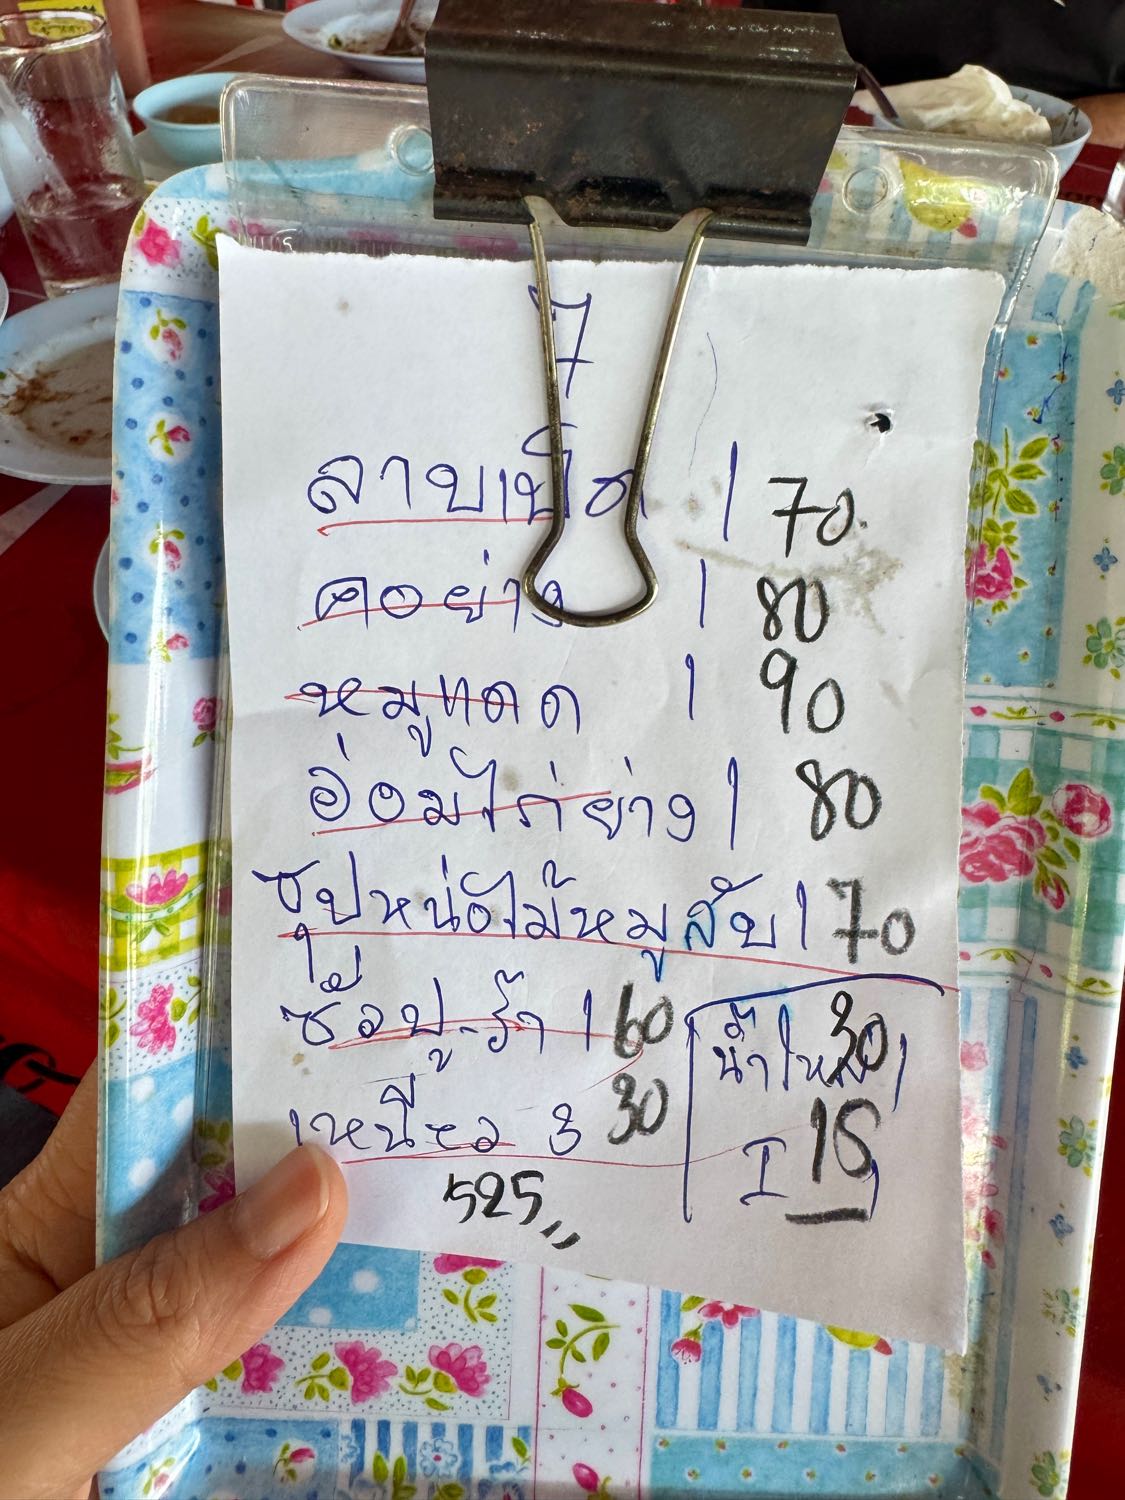 7
ลาบเป็ด 1 70
คอย่าง 1 80
หมูทอด 1 90
อ่อมไก่ย่าง 1 80
ซุปหน่อไม้หมูสับ 1 70
ซั้วปู-ร้า 1 60
เหนียว 3 30
น้ำใหญ่ 1 30
I 15
525